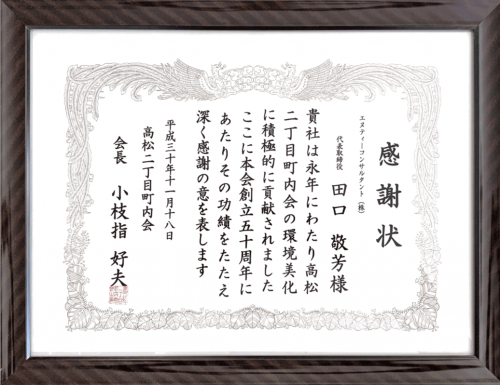 感謝状
エヌティーコンサルタント(株)
代表取締役 田口 敬芳様
貴社は永年にわたり高松
二丁目町内会の環境美化
に積極的に貢献されました
ここに本会創立五十周年に
あたりその功績をたたえ
深く感謝の意を表します
平成三十年十一月十八日
高松二丁目町内会
会長 小枝指 好夫